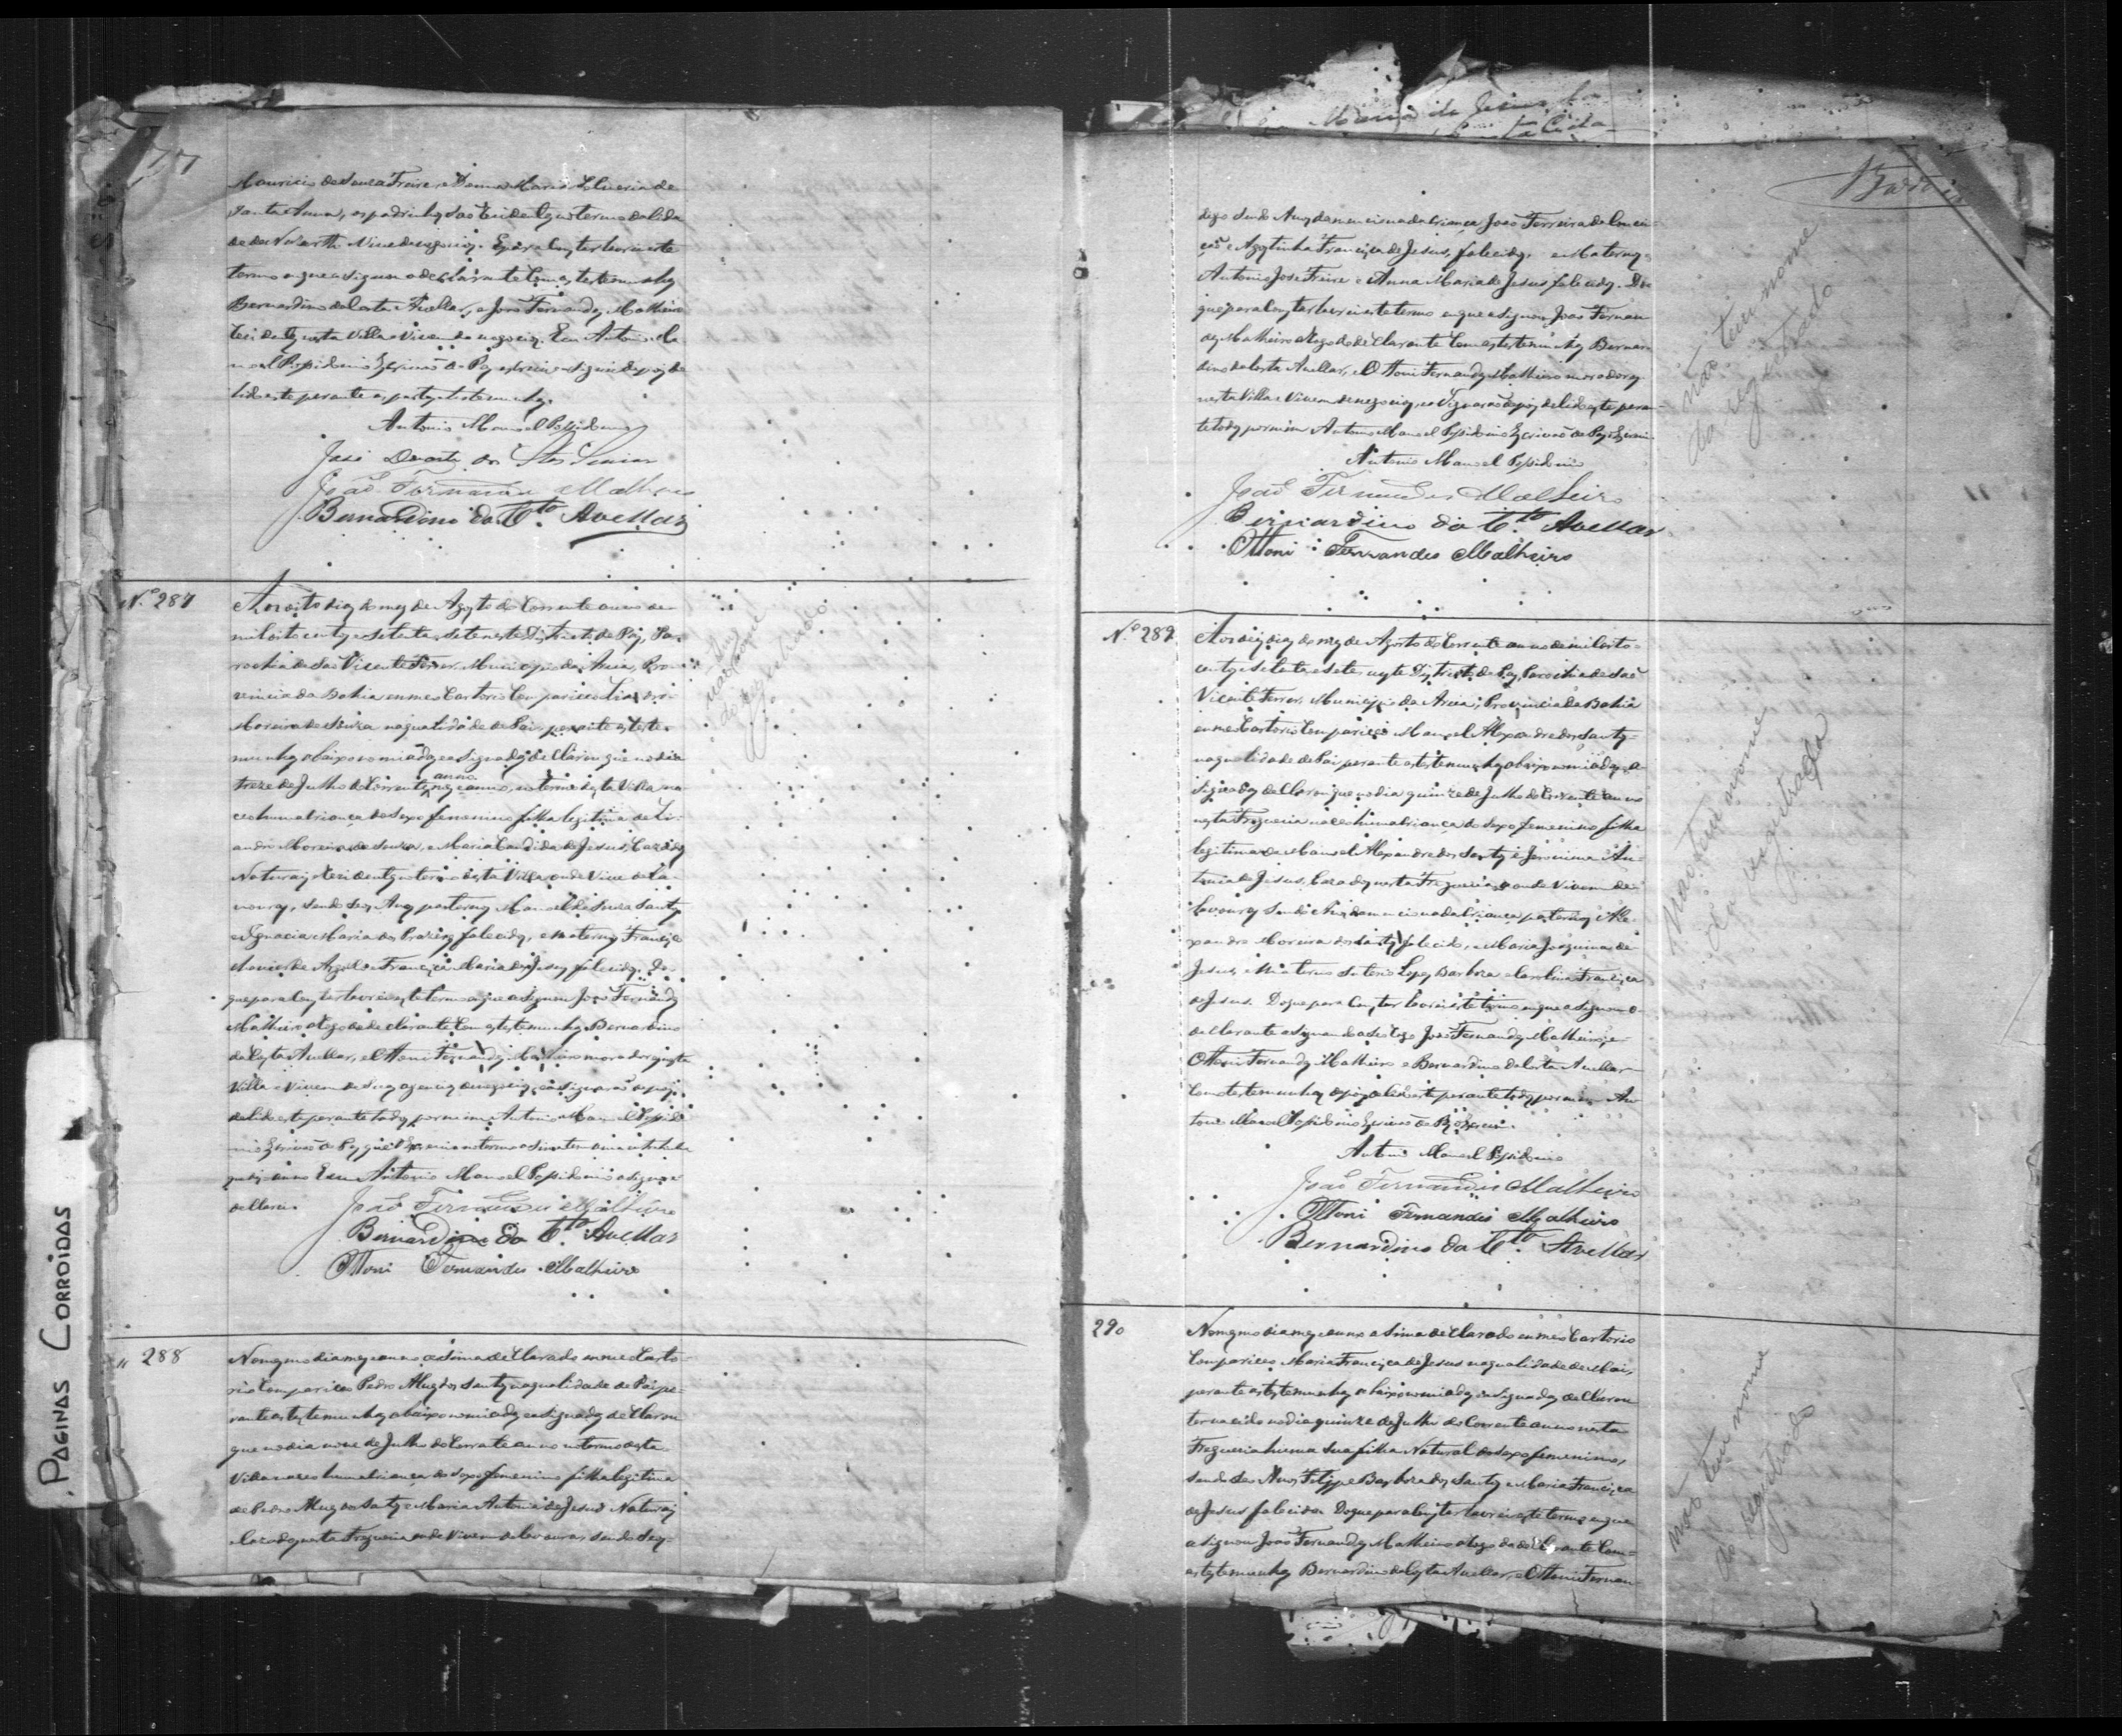 77
Mauricio de Souza Freire, e Donna Maria
Santa Anna, os padrinhos são
de de Nazareth. Vive de negocios. E para constar lavrei este
termo em que assignou o declarante com as testemunhas
Bernardino da Costa Avellar, e João Fernandes Malheiro
nesta Villa e Vivem de negocios. Eu Antonio Ma-
noel Possidonio Escrivão de Paz escrevi e assignei depois de
lido este perante as partes e testemunhas.
Antonio Manoel Possidonio
José Duarte dos Stos
João Fernandes Malheiro
Bernardino da Cta. Avellar
N.º 287
Aos oito dias do mes de Agosto do Corrente anno de
mil oito centos e setenta e sete neste Districto de Paz, Pa-
rochia de São Vicente Ferrer, Municipio da Areia, Pro-
vincia da Bahia em meo Cartorio Compareceo Liandro
Moreira de Souza na qualidade de Pai, perante as teste-
munhas abaixo nomiadas e assignadas declarou que no dia
anno
treze de Julho do Corrente mes e anno, no termo desta Villa na-
ceo huma criança do Sexo femenino filha legitima de Li-
andro Moreira de Souza, e Maria Candida de Jesus, Cazados
Naturais e Rezidentes no termo desta Villa onde Vive de La-
vouras, sendo seos Avos paternos Manoel de Souza Santos
e Ignacia Maria dos Prazeres falecidos, e maternos Francisco
Xavier de e Francisca Maria de Jesus falecidos. Do
que para Constar lavrei este termo em que assignou João Fernandes
Malheiro a rogo do declarante com as testemunhas Bernardino
da Costa Avellar, e Ottoni Fernandes Malheiro moradores nesta
Villa e Vivem de suas agencias e negocios, e assignarão depois
de lido este perante todos por mim Antonio Manoel Possido-
nio Escrivão de Paz que Escrevi
Eu Antonio Manoel Possidonio assignei e
declarei.
João Fernandes Malheiro
Bernardino da Cta. Avellar
Ottoni Fernandes Malheiro
não tem nome
do registrado
" 288
No mesmo dia mes e anno assima declarado em meo Carto-
rio Compareceo Pedro Alves dos Santos na qualidade de Pai pe-
rante as testemunhas abaixo nomiadas e assignadas declarou
que no dia nove de Julho do Corrente anno no termo desta
Villa naceo huma criança do sexo femenino filha legitima
de Pedro Alves dos Santos e Maria Antonia de Jesus Naturais
e Cazados nesta Freguezia onde Vivem de lavouras, sendo seos
PAGINAS CORROIDAS
Maria de Jesus
digo sendo Avos da mencionada criança João Ferreira da Concei-
ção e Agostinha Francisca de Jesus, falecidos, e Maternos
Antonio José Freire e Anna Maria de Jesus falecidos. Do
que para Constar lavrei este termo em que assignou João Fernan-
des Malheiro a rogo do declarante Com as testemunhas Bernar-
dino da Costa Avellar, e Ottoni Fernandes Malheiro moradores
nesta Villa e Vivem de negocios, e assignarão depois de lido este peran-
te todos por mim Antonio Manoel Possidonio Escrivão de Paz Escrevi
Antonio Manoel Possidonio
João Fernandes Malheiro
Bernardino da Cta. Avellar
Ottoni Fernandes Malheiro
não tem nome
da registrado
N.º 289
Aos dez dias do mes de Agosto do Corrente anno de mil oito
centos e setenta e sete neste Districto de Paz, Parochia de São
Vicente Ferrer, Municipio da Areia, Provincia da Bahia
em meo Cartorio Compareceo Manoel Alexandre dos Santos
na qualidade de Pai perante as testemunhas abaixo nomiadas e as-
signadas declarou que no dia quinze de Julho do Corrente anno
nesta Freguezia naceo huma criança do Sexo femenino filha
legitima de Manoel Alexandre dos Santos e Jeronima An-
tonia de Jesus, Cazados nesta Freguezia onde Vivem de
lavouras sendo Avos da mencionada criança paternos Ale-
xandre Moreira dos Santos falecido, e Maria Joaquina de
Jesus, e Maternos Lopes Barboza e Carolina Francisca
de Jesus. Do que para Constar lavrei este termo em que assignou o
declarante assignando a seo rogo João Fernandes Malheiro, e
Ottoni Fernandes Malheiro e Bernardino da Costa Avellar
como testemunhas depois de lido este perante todos por mim An-
tonio Manoel Possidonio Escrivão de Paz Escrevi.
Antonio Manoel Possidonio
João Fernandes Malheiro
Ottoni Fernandes Malheiro
Bernardino da Cta. Avellar
Não tem nome
da registrada
290
No mesmo dia mes e anno assima declarado em meo Cartorio
Compareceo Maria Francisca de Jesus na qualidade de Mai,
perante as testemunhas abaixo nomiadas e assignadas declarou
ter nacido no dia quinze de Julho do Corrente anno nesta
Freguezia huma sua filha Natural do sexo femenino,
sendo seos Avos Felippe Barboza dos Santos e Maria Francisca
de Jesus falecida. Do que para Constar lavrei este termo em que
assignou João Fernandes Malheiro a rogo da declarante Com
as testemunhas Bernardino da Costa Avellar, e Ottoni Fernan-
não tem nome
do registrado